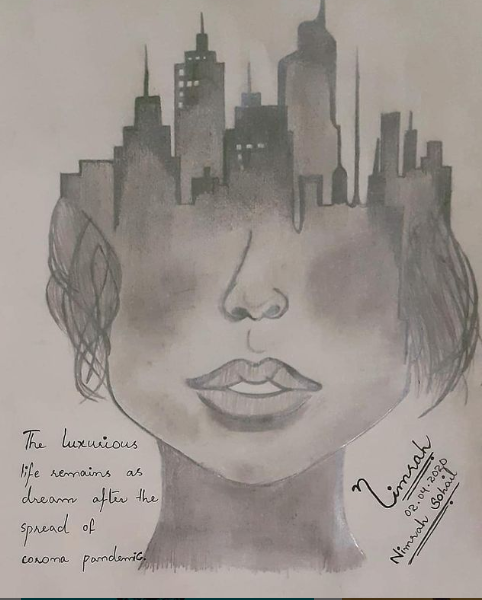 The luxurious
life remains as
dream after the
spread of
corona pandemic.
Nimrah
02.04.2020
Nimrah Sohail